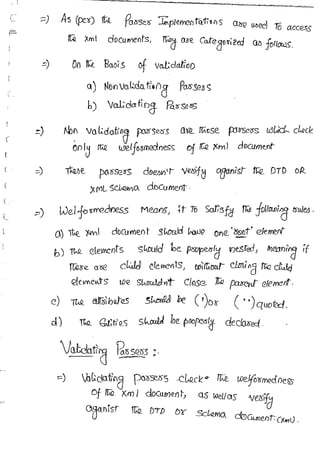 =) As (per) the Parser Implementations are used to access
the xml documents, They are Categorized as follows.
=) On the Basis of validation
a) Nonvalidating Parsers
b) Validating Parsers
=) Non validating parsers are those parsers which check
only the welformedness of the xml document
=) These parsers doesn't verify aganist the DTD OR
XML Schema document.
=) Welformedness Means, it To Satisfy the following rules.
a) The xml document should have one "root" element
b) The elements should be properly nested, meaning if
there are child elements, without closing the child
elements we shouldn't close the parent element.
c) The attributes should be (') or (") quoted.
d) The Entities should be properly declared.
Validating Parsers :-
=) Validating parsers check the welformedness
of the xml document, as well as verify
aganist the DTD or Schema document (xml).